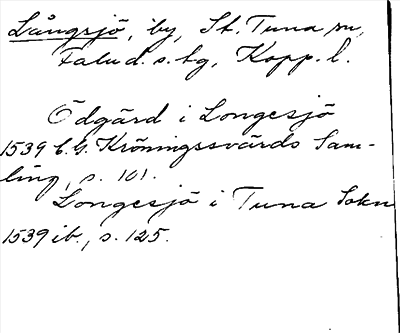 Långsjö, by, St. Tuna sn,
Falu d. s. bg, Kopp. l.
Ödgärd i Longesjö
1539 C. G. Kröningssvärds Sam-
ling, s. 101.
Longesjö i Tuna Sokn
1539 ib., s. 125.